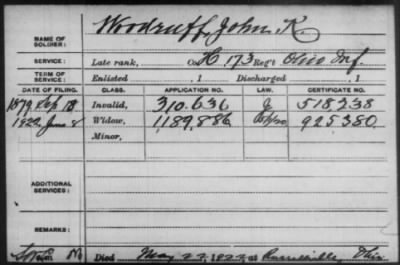 NAME OF SOLDIER: Woodruff, John K.
SERVICE: Late rank, Co. H, 173 Reg't Ohio Inf.
TERM OF SERVICE: Enlisted , 1 Discharged , 1
DATE OF FILING. CLASS. APPLICATION NO. LAW. CERTIFICATE NO.
1879 Sep 18 Invalid, 310.636 518238
1922 June 8 Widow, 1,189,886 925380
Minor,
ADDITIONAL SERVICES:
REMARKS:
Died May 27, 1922, at Russellville, Ohio